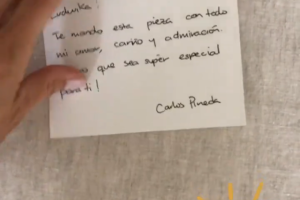 Te mando esta pieza con todo
mi amor, cariño y admiración.
que sea super especial
para ti!
Carlos Pineda